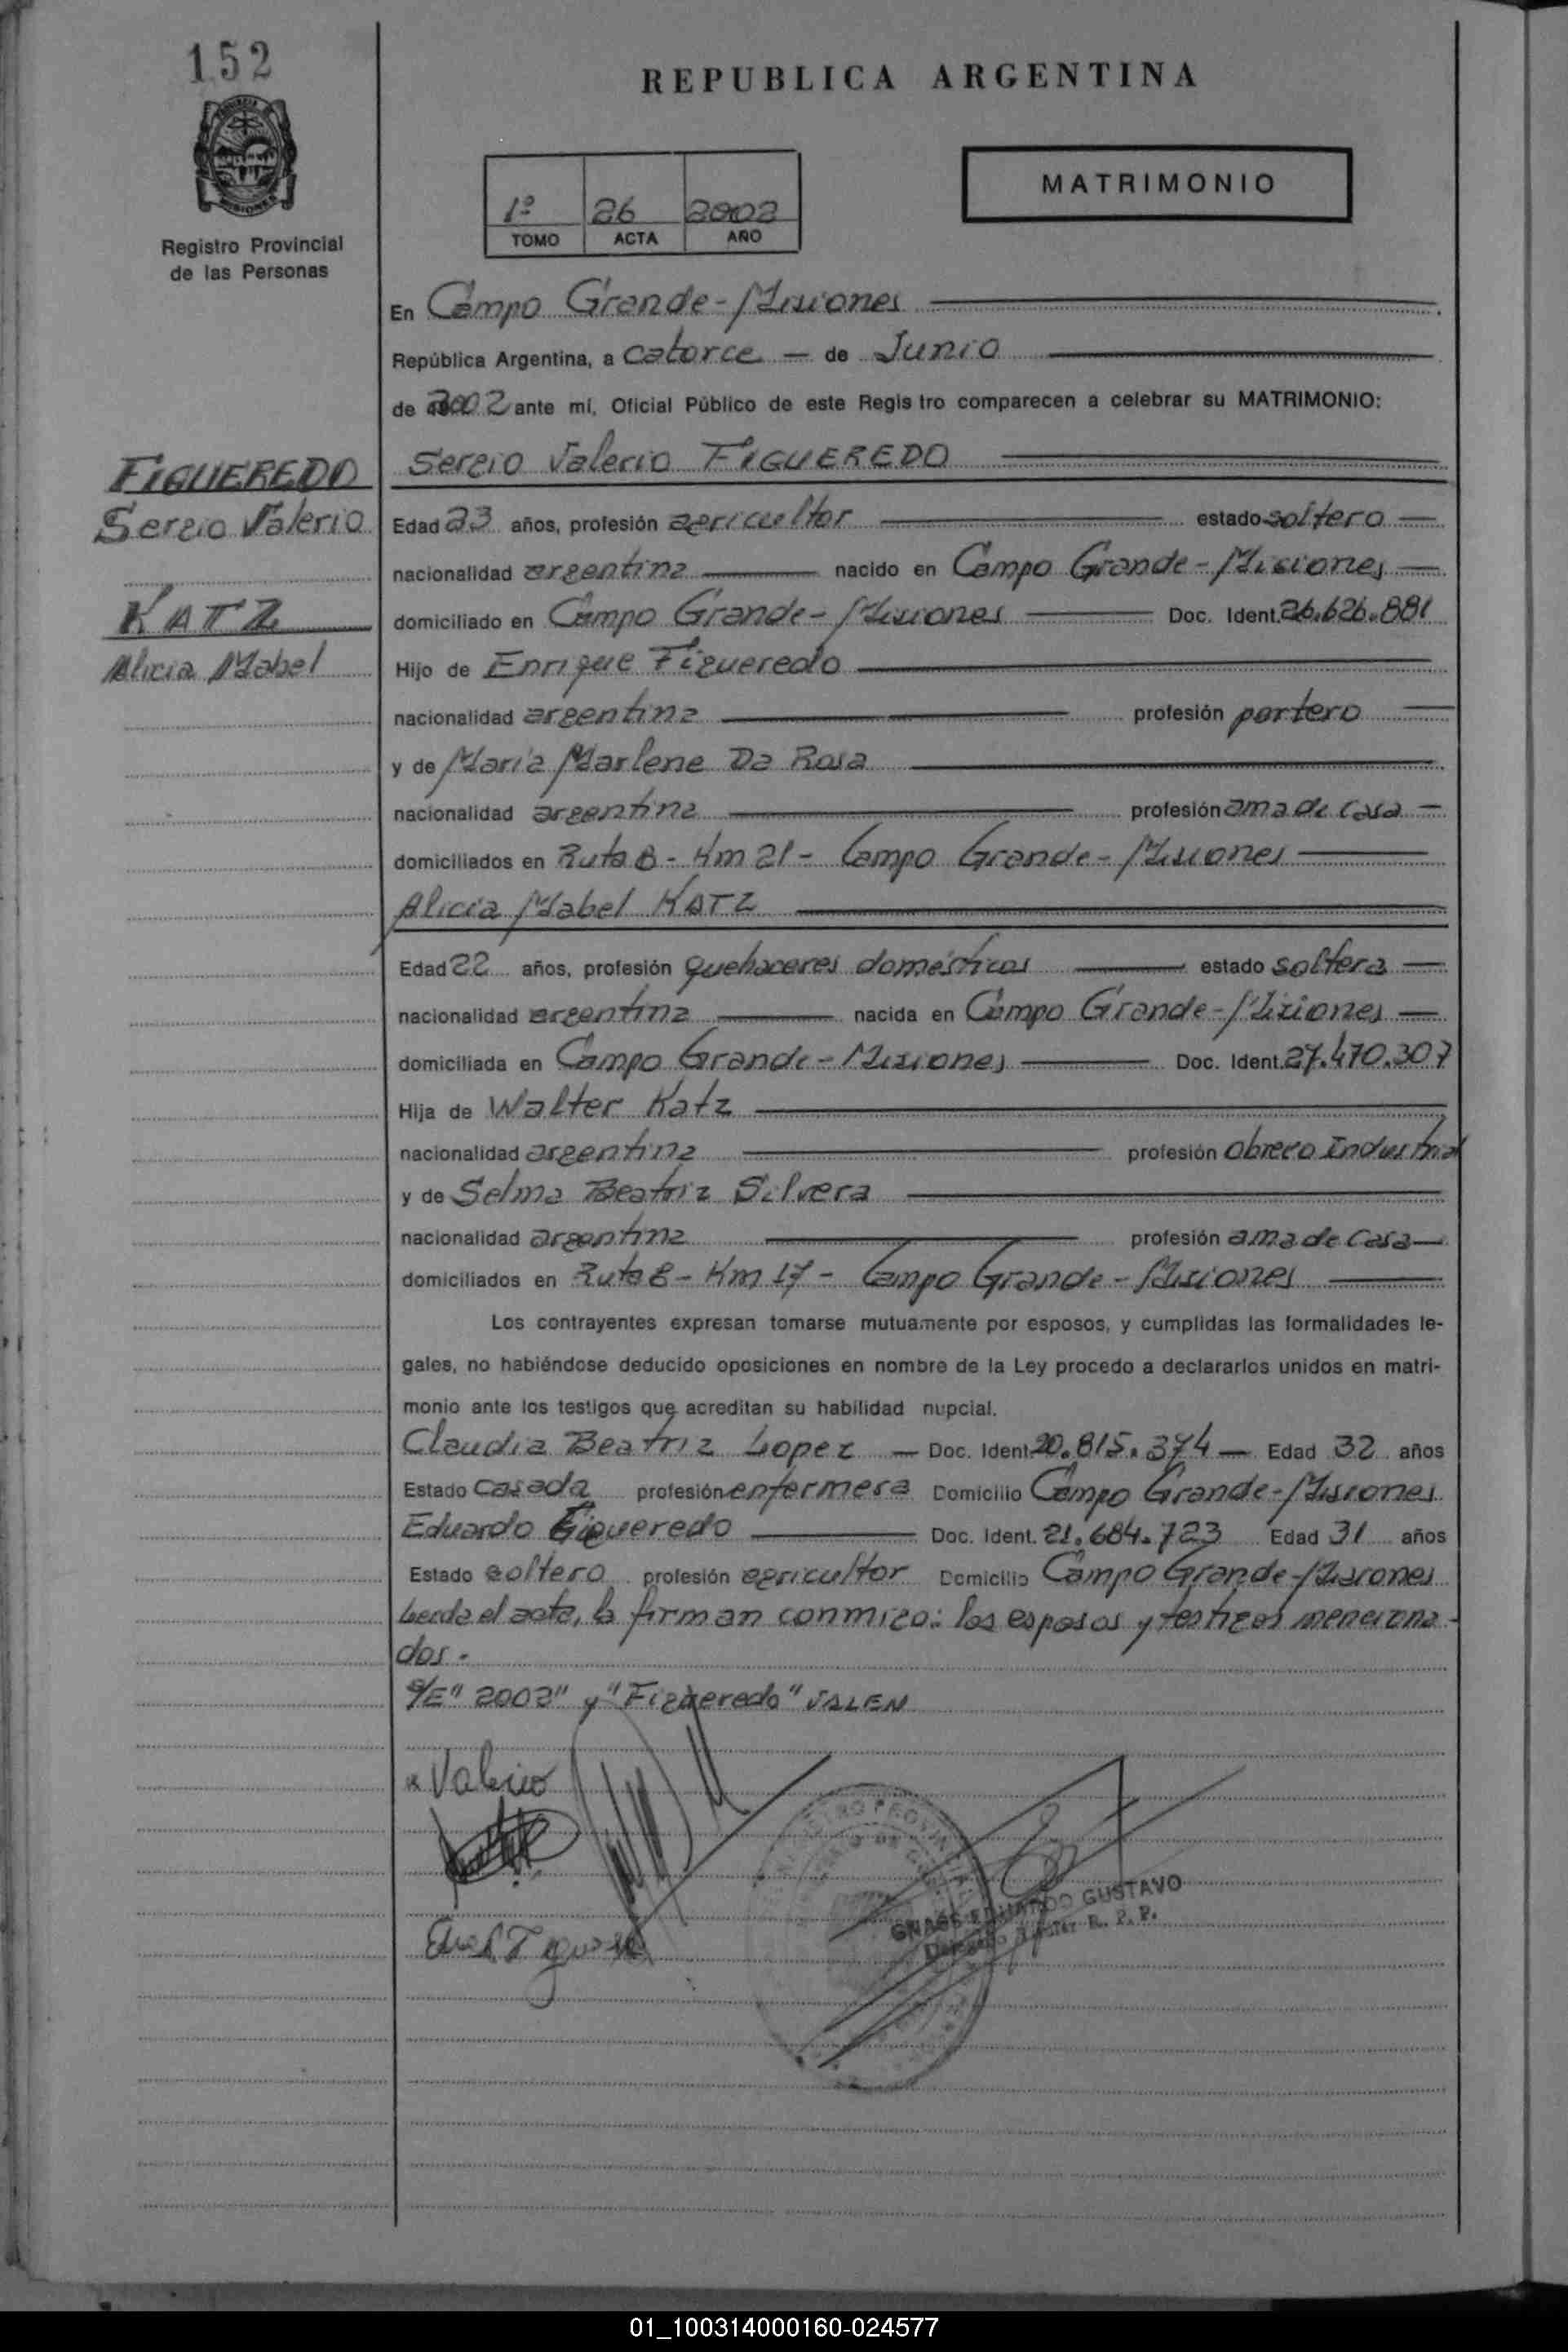 152
REPUBLICA ARGENTINA
MATRIMONIO
1º 26 2002
TOMO ACTA AÑO
Registro Provincial
de las Personas
En Campo Grande - Misiones
República Argentina, a catorce — de Junio
de 2002 ante mí, Oficial Público de este Regis tro comparecen a celebrar su MATRIMONIO:
FIGUEREDO
Sergio Valerio
KATZ
Alicia Mabel
Sergio Valerio FIGUEREDO
Edad 23 años, profesión agricultor estado soltero
nacionalidad argentina nacido en Campo Grande - Misiones
domiciliado en Campo Grande - Misiones Doc. Ident. 26.626.881
Hijo de Enrique Figueredo
nacionalidad argentina profesión portero
y de María Marlene Da Rosa
nacionalidad argentina profesión ama de casa
domiciliados en Ruta 8 - Km 21 - Campo Grande - Misiones
Alicia Mabel KATZ
Edad 22 años, profesión quehaceres domésticos estado soltera
nacionalidad argentina nacida en Campo Grande - Misiones
domiciliada en Campo Grande - Misiones Doc. Ident. 27.470.307
Hija de Walter Katz
nacionalidad argentina profesión obrero Industrial
y de Selma Beatriz Silvera
nacionalidad argentina profesión ama de casa
domiciliados en Ruta 8 - Km 17 - Campo Grande - Misiones
Los contrayentes expresan tomarse mutuamente por esposos, y cumplidas las formalidades le-
gales, no habiéndose deducido oposiciones en nombre de la Ley procedo a declararlos unidos en matri-
monio ante los testigos que acreditan su habilidad nupcial.
Claudia Beatriz Lopez — Doc. Ident. 20.815.374 — Edad 32 años
Estado casada profesión enfermera Domicilio Campo Grande - Misiones
Eduardo Figueredo Doc. Ident. 21.684.723 Edad 31 años
Estado soltero profesión agricultor Domicilio Campo Grande - Misiones
Leida el acta, la firman conmigo: los esposos y testigos menciona-
dos.
S/E " 2002" y "Figueredo" VALEN
x Valerio
EDUARDO GUSTAVO
R. P. P.
01_100314000160-024577